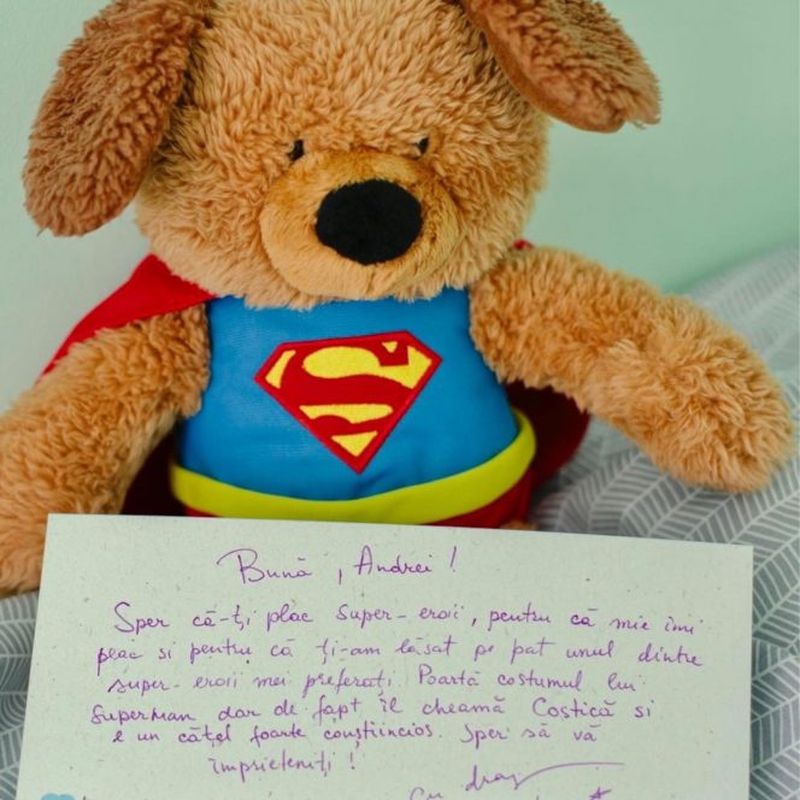 Bună, Andrei!
Sper că-ți plac super-eroii, pentru că mie îmi
plac si pentru că ți-am lăsat pe pat unul dintre
super-eroii mei preferați. Poartă costumul lui
Superman dar de fapt îl cheamă Costică si
e un cățel foarte conștiincios. Sper să vă
împrieteniți!
Cu drag